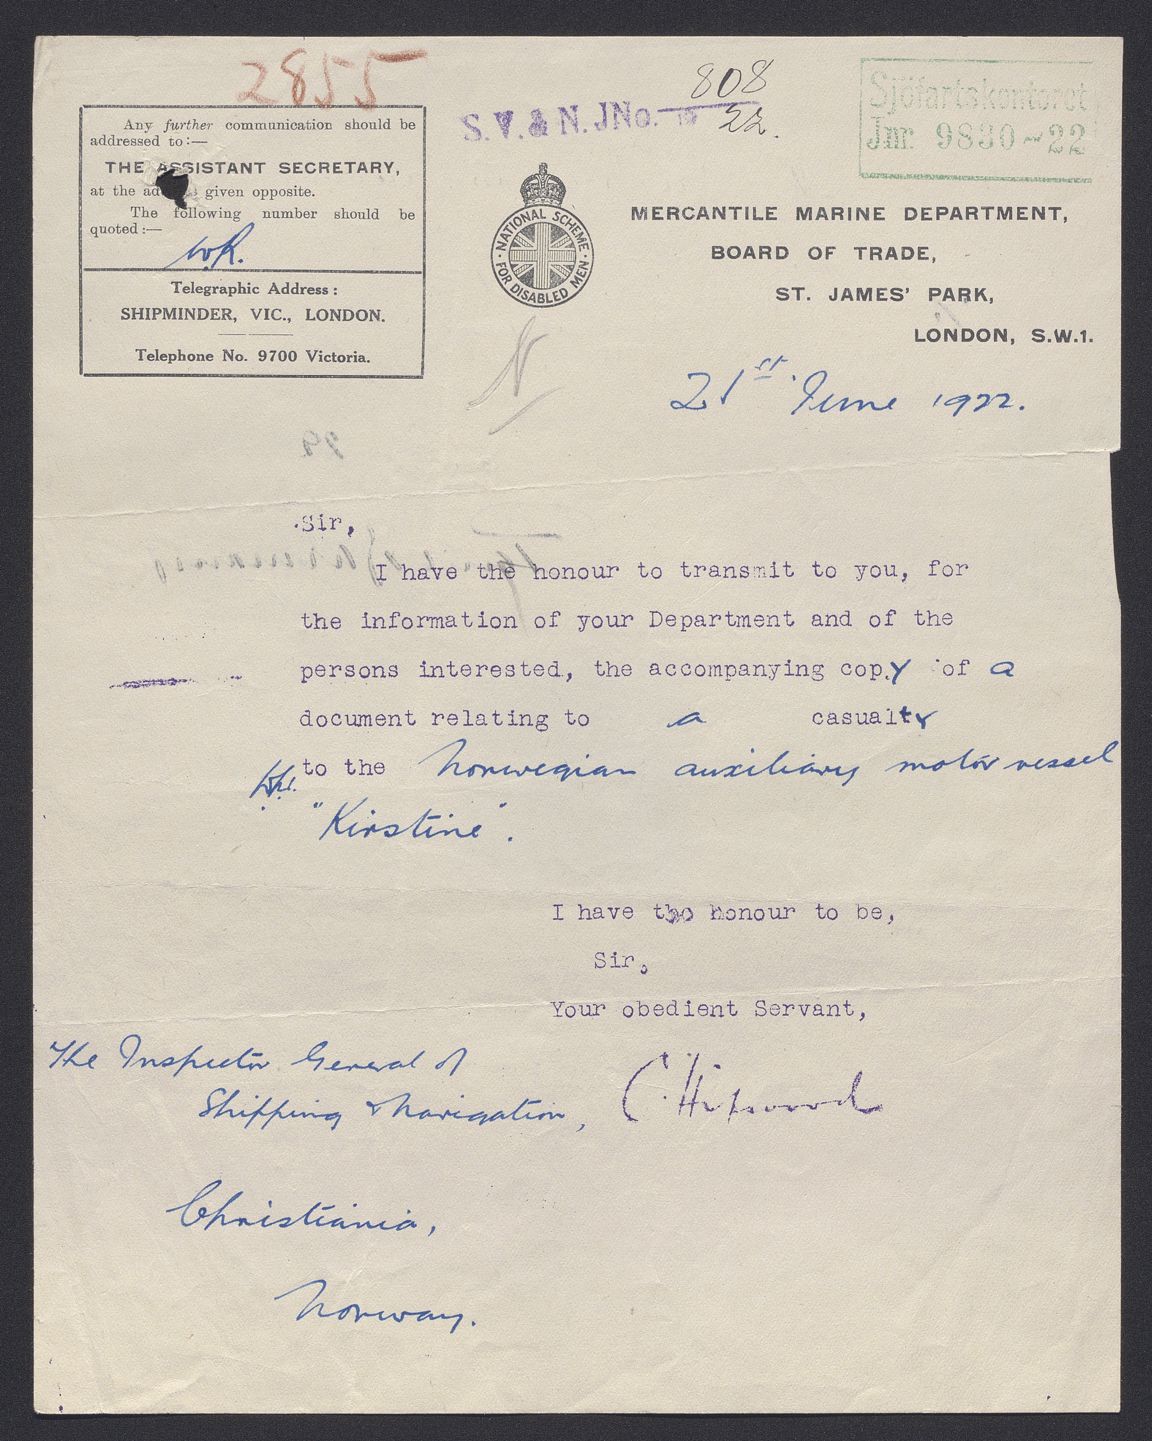 2855
808
S.V. & N. JNo. 19 22.
Sjöfartskontoret
Jnr. 9830-22
Any further communication should be
addressed to:—
THE ASSISTANT SECRETARY,
at the given opposite.
The following number should be
quoted:—
W.R.
Telegraphic Address:
SHIPMINDER, VIC., LONDON.
Telephone No. 9700 Victoria.
NATIONAL SCHEME
FOR DISABLED MEN
MERCANTILE MARINE DEPARTMENT,
BOARD OF TRADE,
ST. JAMES' PARK,
LONDON, S.W.1.
21st June 1922.
Sir,
I have the honour to transmit to you, for
the information of your Department and of the
persons interested, the accompanying copy of a
document relating to a casualty
to the Norwegian auxiliary motor vessel
"Kirstine".
I have the honour to be,
Sir,
Your obedient Servant,
C. Hipwood
The Inspector General of
Shipping & Navigation,
Christiania,
Norway.